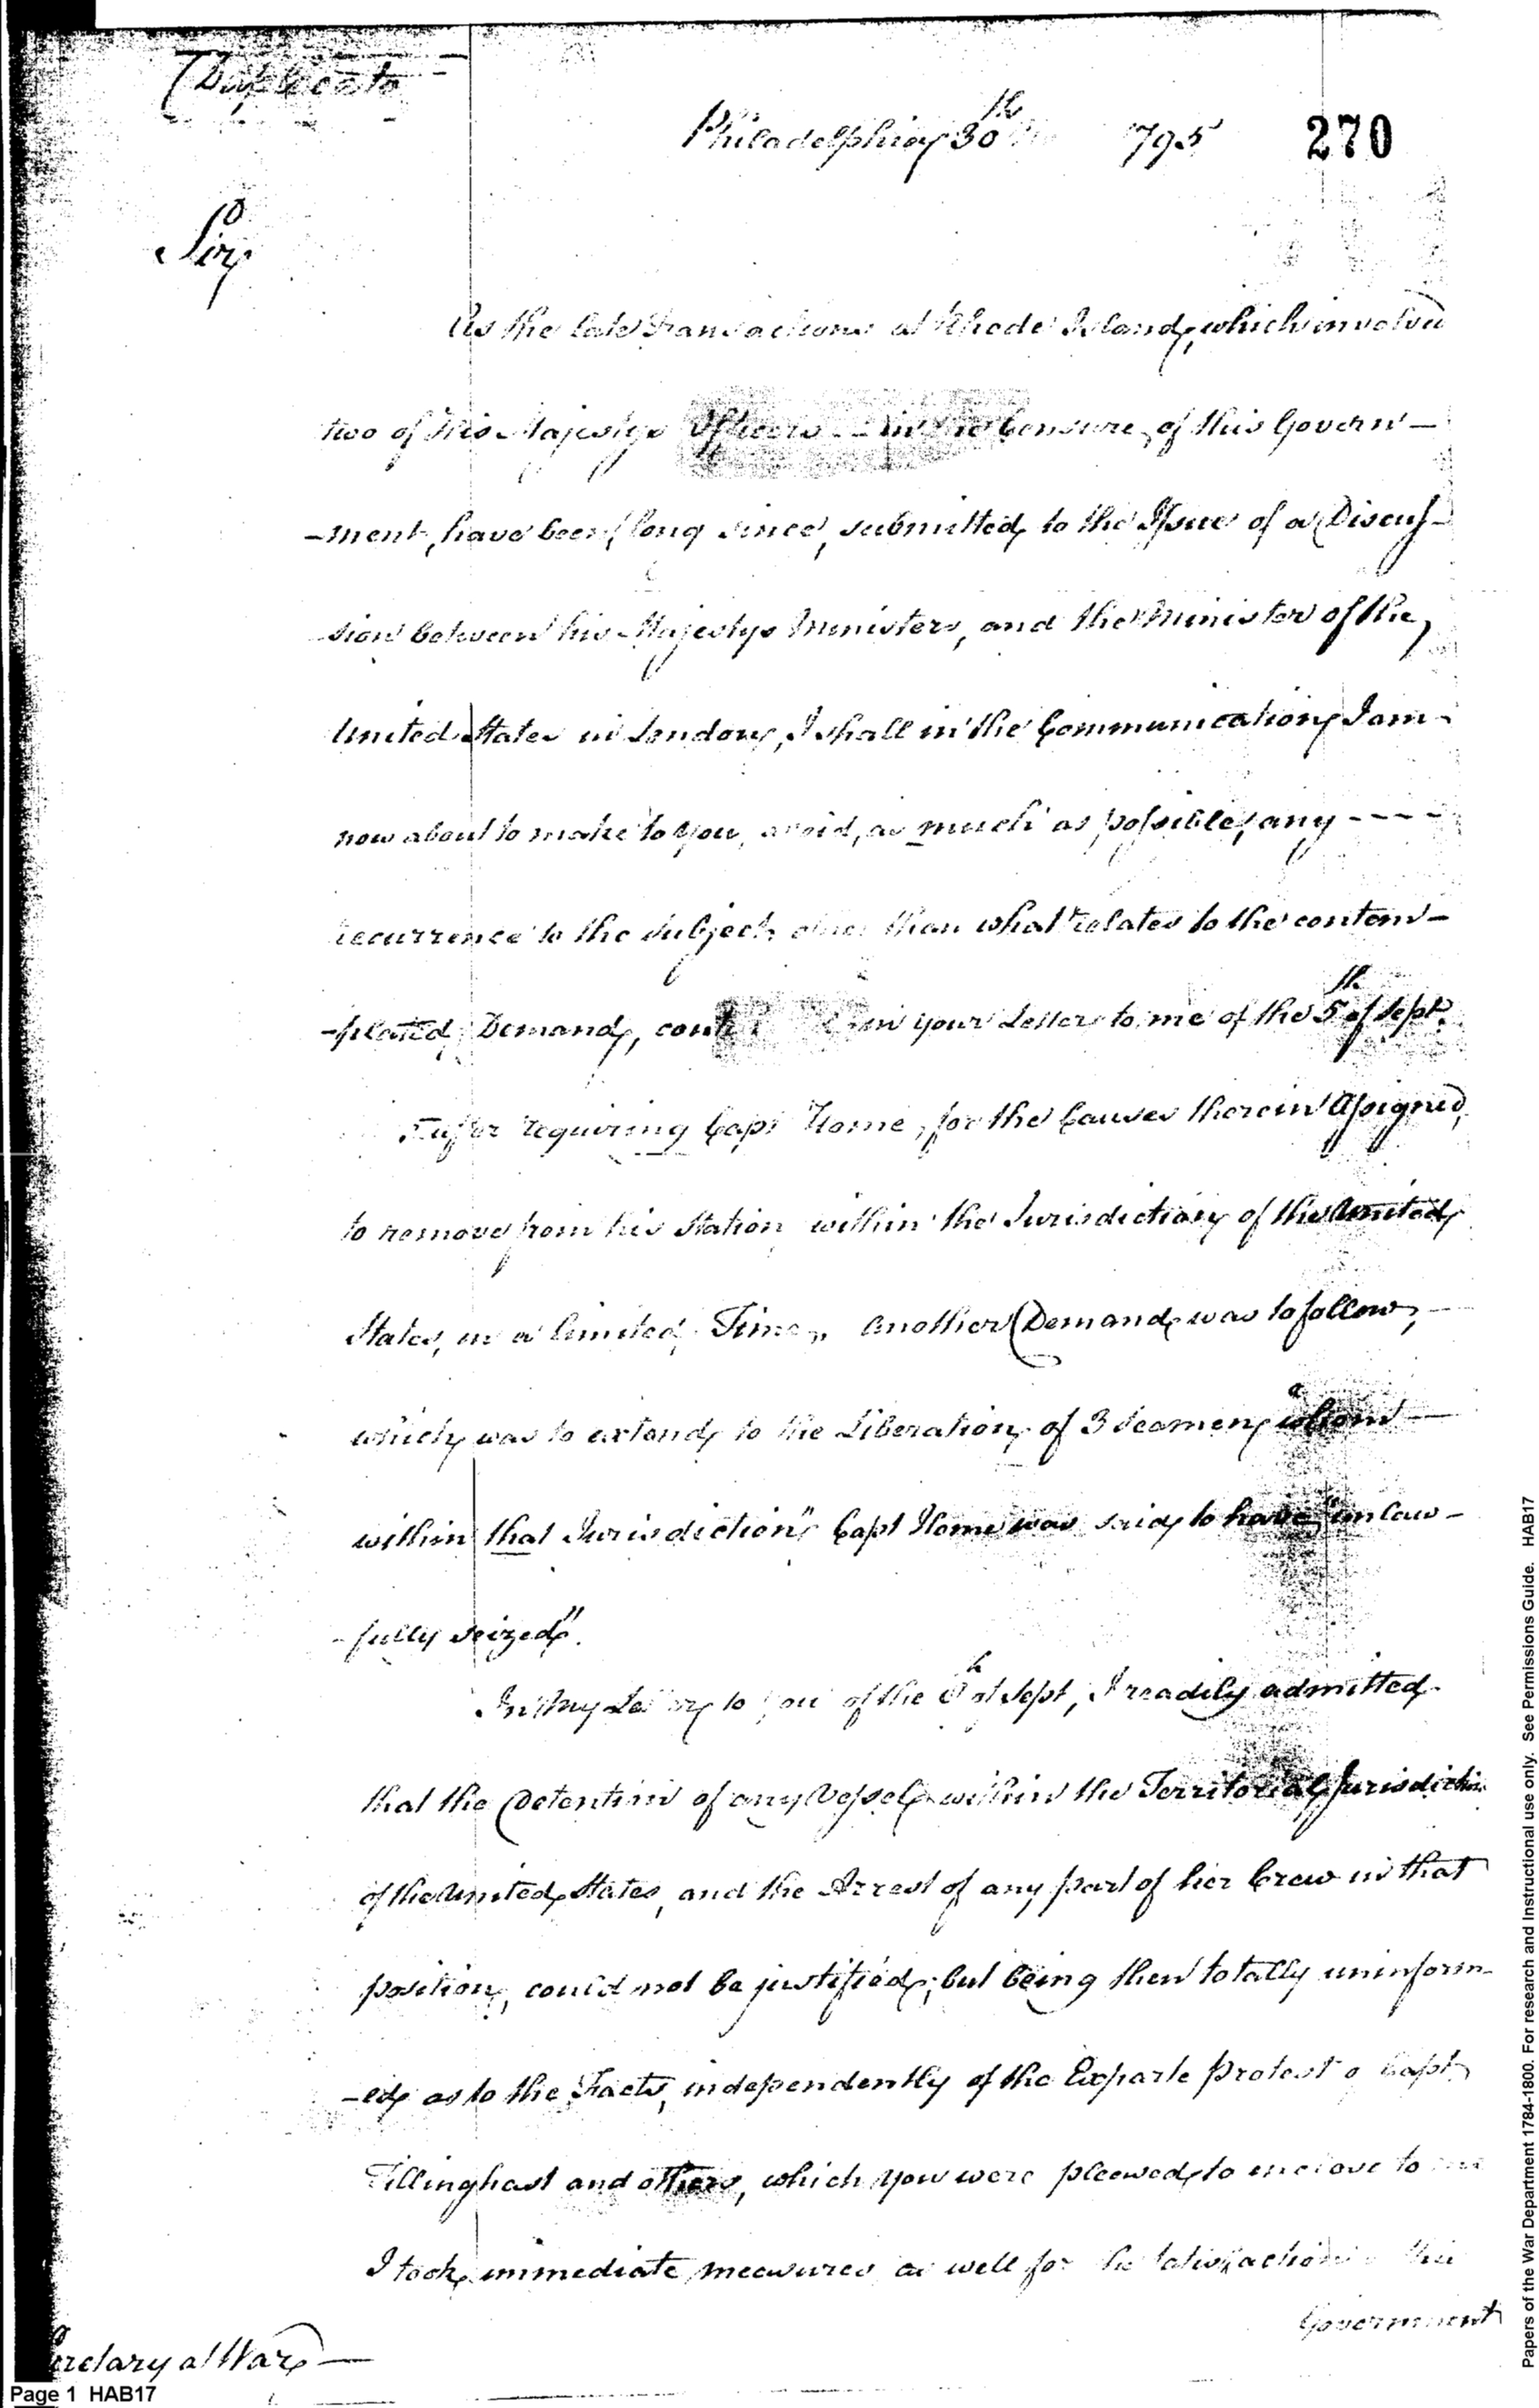 Duplicate
Philadelphia, 30th 1795
270
Sir,
As the late Transactions at Rhode Island, which involved
two of His Majestys Officers -- in the Censure of this Govern-
-ment, have been, long since, submitted to the Issue of a Discus-
-sion between his Majestys Ministers, and the Minister of the
United States in London, I shall in the Communication I am
now about to make to you, avoid, as much as possible, any ----
recurrence to the subject other than what relates to the contem-
-plated Demand, in your Letter to me of the 5th of Sept.
After requiring Capt Home, for the Causes therein Assigned,
to remove from his Station within the Jurisdiction of the United
States, in a limited Time, Another Demand was to follow, -
which was to extend to the Liberation of 3 Seamen, "whom
within that Jurisdiction" Capt Home was said to have "unlaw-
-fully seized".
In my Letter to you of the Sept, I readily admitted
that the Detention of any Vessel within the Territorial Jurisdiction
of the United States, and the Arrest of any part of her Crew in that
position, could not be justified; but being then totally uninform-
-ed as to the Facts, independently of the Exparte Protest of Capt
Tillinghast and others, which you were pleased to enclose to me
I took immediate measures as well for the satisfaction of this
Government
Secretary at War
Page 1 HAB17
Papers of the War Department 1784-1800. For research and Instructional use only. See Permissions Guide. HAB17